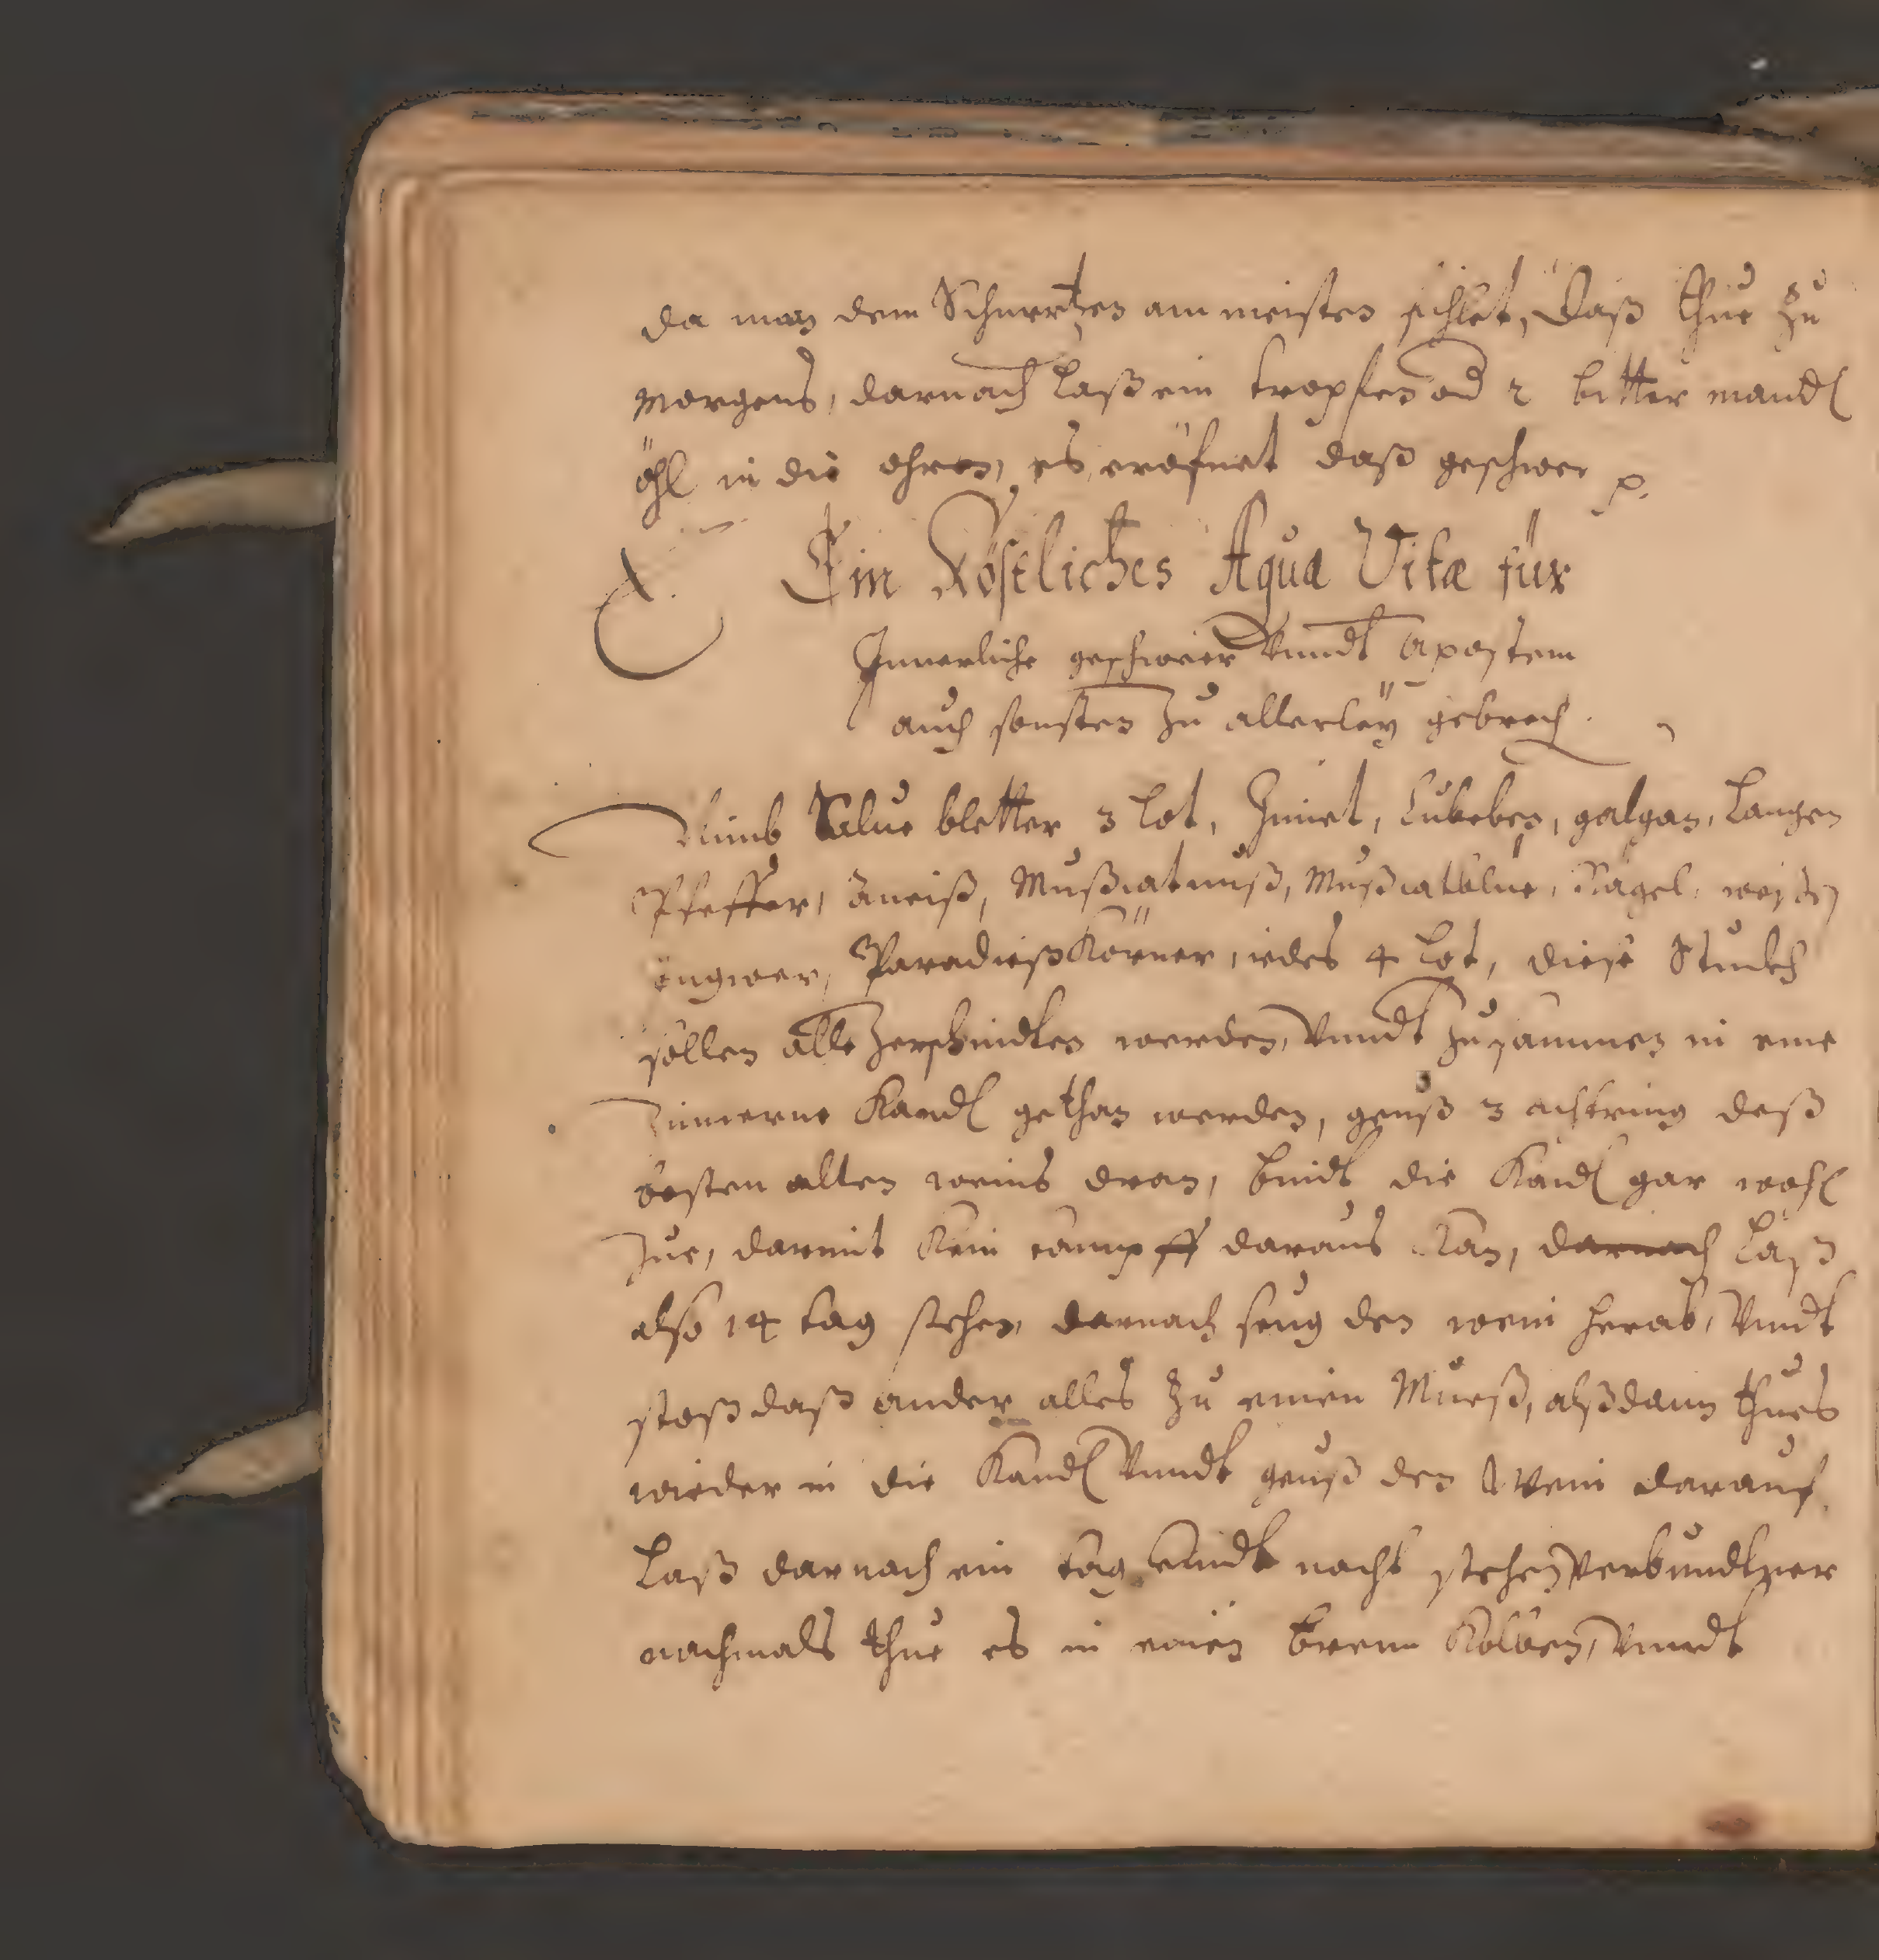 da man dem Schmertzen am meisten fihlet, Daß thue zu
Morgens, darnach laß ein tropfen od 2 bitter mandl
öhl in die ohren, es eröfnet daß geschwer
Ein Köstliches Aqua Vitæ für
Innerliche geschweer Vnndt Apostem
auch sonsten zu allerleÿ gebrech
Nimb Salue bletter 3 lot, Zimet, Cubeben, galgan, Langen
Pfeffer, Aneiß, Mußcatnuß, Mußcatblüe, Nägel, weisen
Engwer, Paradeiß Körner, iedes 4 lot, diese Stuckh
sollen alle Zerschnidten werden, Vnndt zusammen in eine
Zinnerne Kandl gethan werden, geuß 3 achtring deß
besten alten weins dran, bindt die Kandl gar wohl
zue, darmit kein dampff daraus kan, darnach laß
also 14 tag stehen, darnach seug den wein herab, Vnndt
stoß daß ander alles zu einen Mueß, alßdann thues
wieder in die Kandl Vnndt geuß den Wein darauf,
laß darnach ein tag Vnndt nacht stehen Verbundtner
nachmals thue es in einen bren Kolben, Vnndt